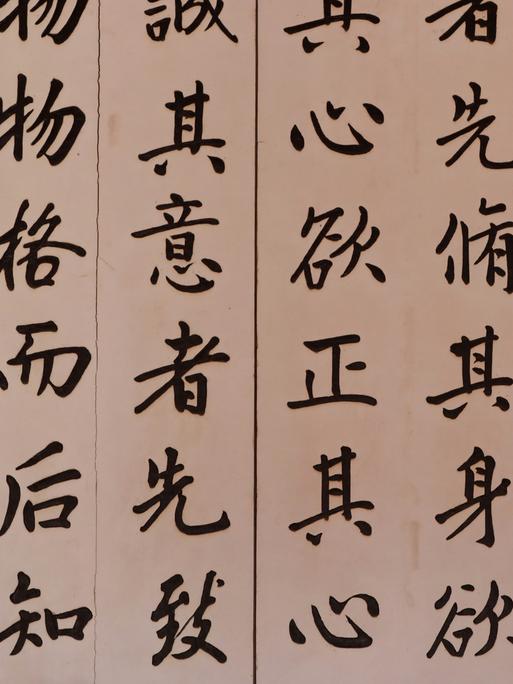 者先脩其身欲
其心欲正其心
誠其意者先致
物物格而后知